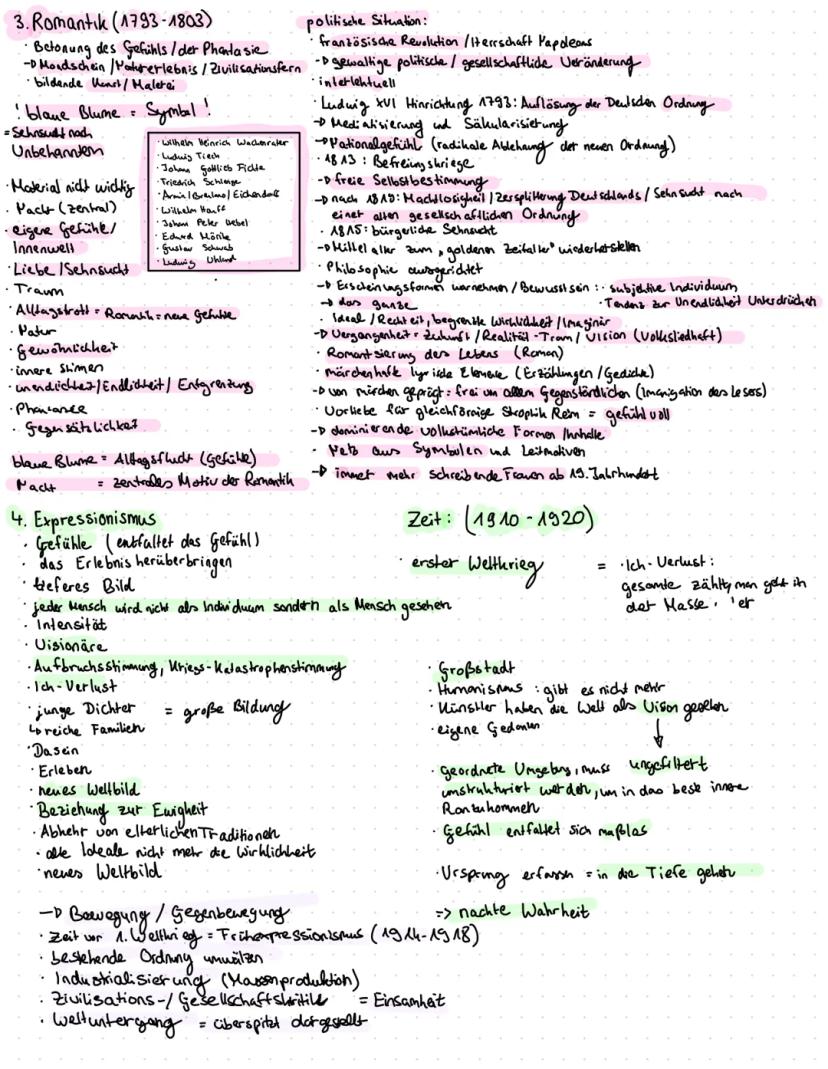 3. Romantik (1793-1803)
· Betonung des Gefühls / der Phantasie
→ Mondschein / Naturerlebnis / Zivilisationsfern
· bildende Kunst / Malerei
! blaue Blume = Symbol !
= Sehnsucht nach
Unbekanntem
· Material nicht wichtig
· Nacht (zentral)
· eigene Gefühle /
Innenwelt
· Liebe / Sehnsucht
· Traum
· Alltagstrott = Romantik = neue Gefühle
· Natur
· Gewöhnlichkeit
· innere Stimmen
· unendlichkeit / Endlichkeit / Entgrenzung
· Phantasie
· Gegensätzlichkeit
blaue Blume = Alltagsflucht (Gefühle)
Nacht = zentrales Motiv der Romantik
· Wilhelm Heinrich Wackenroder
· Ludwig Tieck
· Johann Gottlieb Fichte
· Friedrich Schlegel
· Arnim / Brentano / Eichendorff
· Wilhelm Hauff
· Johann Peter Hebel
· Eduard Mörike
· Gustav Schwab
· Ludwig Uhland
politische Situation:
· französische Revolution / Herrschaft Napoleons
→ gewaltige politische / gesellschaftliche Veränderung
· intellektuell
· Ludwig XVI Hinrichtung 1793: Auflösung der Deutschen Ordnung
→ Mediatisierung und Säkularisierung
→ Nationalgefühl (radikale Ablehnung der neuen Ordnung)
· 1813: Befreiungskriege
→ freie Selbstbestimmung
→ nach 1810: Machtlosigkeit / Zersplitterung Deutschlands / Sehnsucht nach
einer alten gesellschaftlichen Ordnung
· 1815: bürgerliche Sehnsucht
→ Mittelalter zum „goldenen Zeitalter" wiederherstellen
· Philosophie ausgerichtet
→ Erscheinungsformen warnehmen / Bewusstsein: · subjektive Individuum
→ das ganze · Tendenz zur Unendlichkeit Unterdrücken
· Ideal / Rechteit, begrenzte Wirklichkeit / Imaginär
→ Vergangenheit = Zukunft / Realität - Traum / Vision (Volksliedhaft)
· Romantisierung des Lebens (Roman)
· märchenhafte lyrische Elemente (Erzählungen / Gedichte)
→ von märchen geprägt = frei von allem Gegenständlichen (Imanigation des Lesers)
· Vorliebe für gleichförmige Strophik Reim = gefühlvoll
→ dominierende volkstümliche Formen / Inhalte
· Netz aus Symbolen und Leitmotiven
→ immer mehr schreibende Frauen ab 19. Jahrhundert
4. Expressionismus
Zeit: (1910-1920)
· Gefühle (entfaltet das Gefühl)
· das Erlebnis herüberbringen
· tieferes Bild
· jeder Mensch wird nicht als Individuum sondern als Mensch gesehen
· Intensität
· Visionäre
· Aufbruchsstimmung, Kriegs-Katastrophenstimmung
· Ich-Verlust
· junge Dichter = große Bildung
↳ reiche Familien
· Dasein
· Erleben
· neues Weltbild
· Beziehung zur Ewigkeit
· Abkehr von elterlichen Traditionen
· alte Ideale nicht mehr die Wirklichkeit
· neues Weltbild
· erster Weltkrieg = · Ich-Verlust:
gesamte zählt, man geht in
der Masse
· Großstadt
· Humanismus: gibt es nicht mehr
· Künstler haben die Welt als Vision gesehen
· eigene Gedanken
· geordnete Umgebung, muss ungefiltert
umstrukturiert werden, um in das beste innere
Ranzukommen
· Gefühl entfaltet sich maßlos
· Ursprung erfassen = in die Tiefe gehen
=> nackte Wahrheit
→ Bewegung / Gegenbewegung
· Zeit vor 1. Weltkrieg = Frühexpressionismus (1914-1918)
· bestehende Ordnung umwälzen
· Industrialisierung (Massenproduktion)
· Zivilisations-/ Gesellschaftskritik = Einsamkeit
· Weltuntergang = überspitzt dargestellt